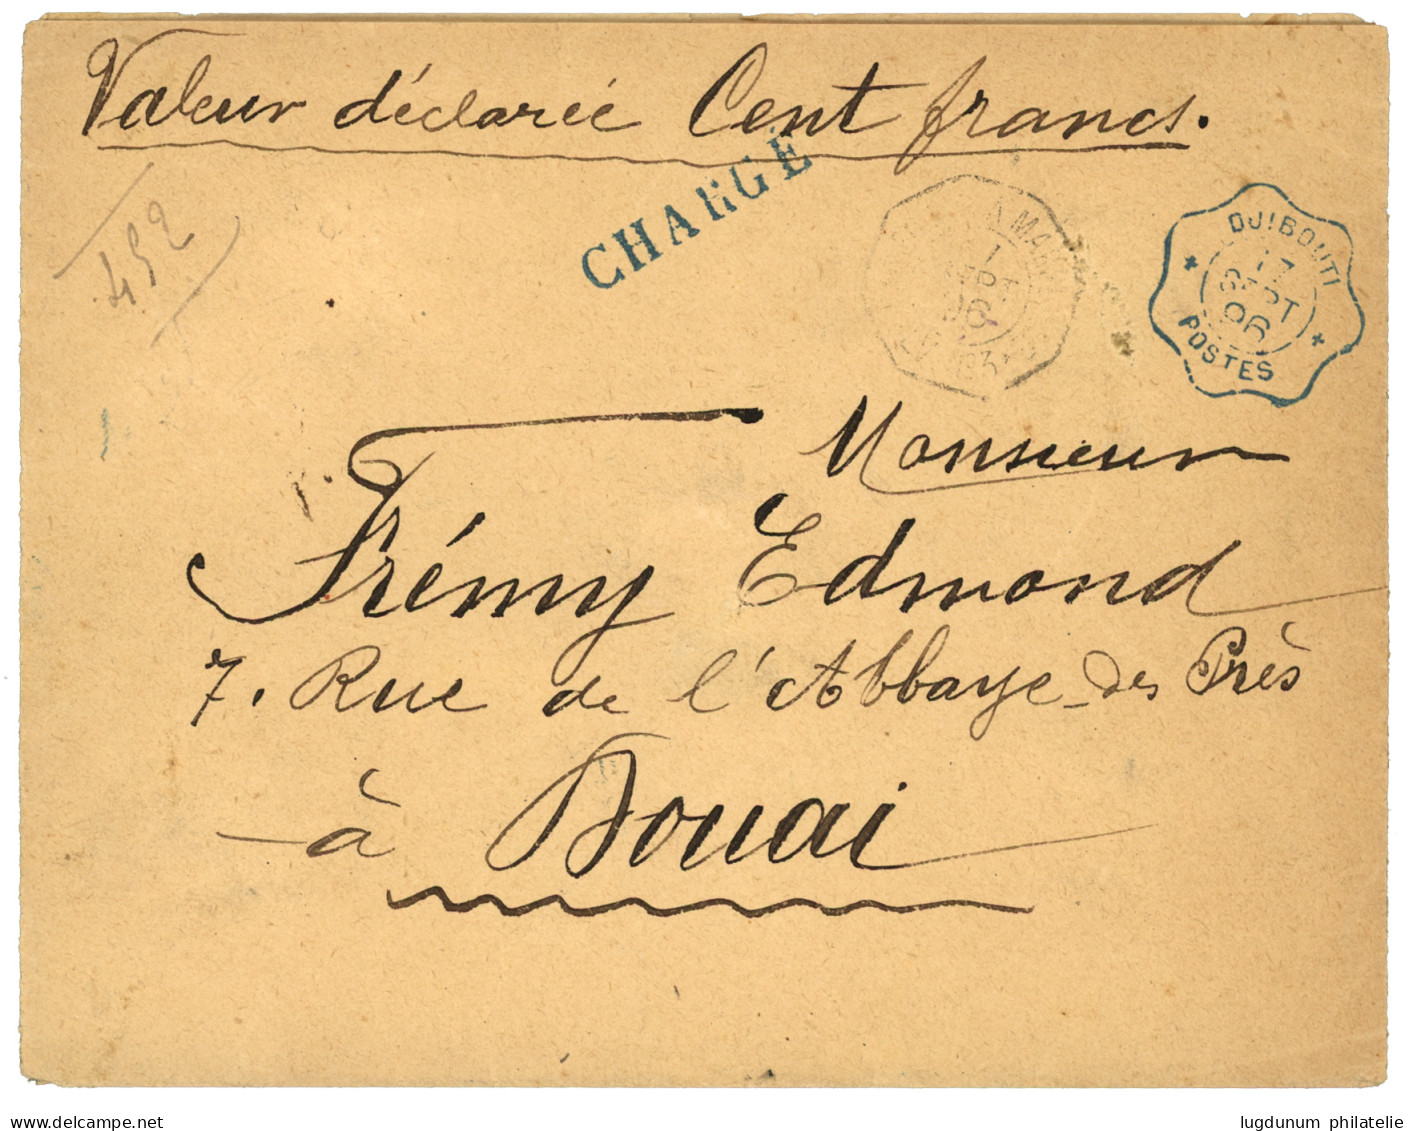 Valeur déclarée Cent francs.
CHARGÉ
452
DJIBOUTI
SEPT
96
POSTES
Monsieur
Frémy Edmond
7. Rue de l'Abbaye-des Près
à Douai
delcampe.net
lugdunum philatelie